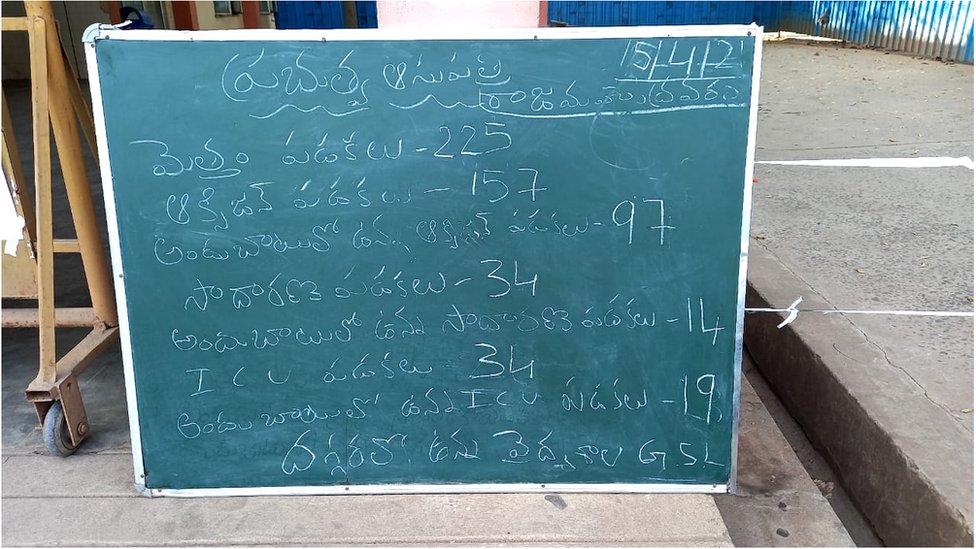 ప్రభుత్వ ఆసుపత్రి
15/4/21
రాజమహేంద్రవరం
మొత్తం పడకలు - 225
ఆక్సిజన్ పడకలు - 157
అందుబాటులో ఉన్న ఆక్సిజన్ పడకలు - 97
సాధారణ పడకలు - 34
అందుబాటులో ఉన్న సాధారణ పడకలు - 14
ICU పడకలు - 34
అందుబాటులో ఉన్న ICU పడకలు - 19
దగ్గరలో ఉన్న వైద్యశాల GSL